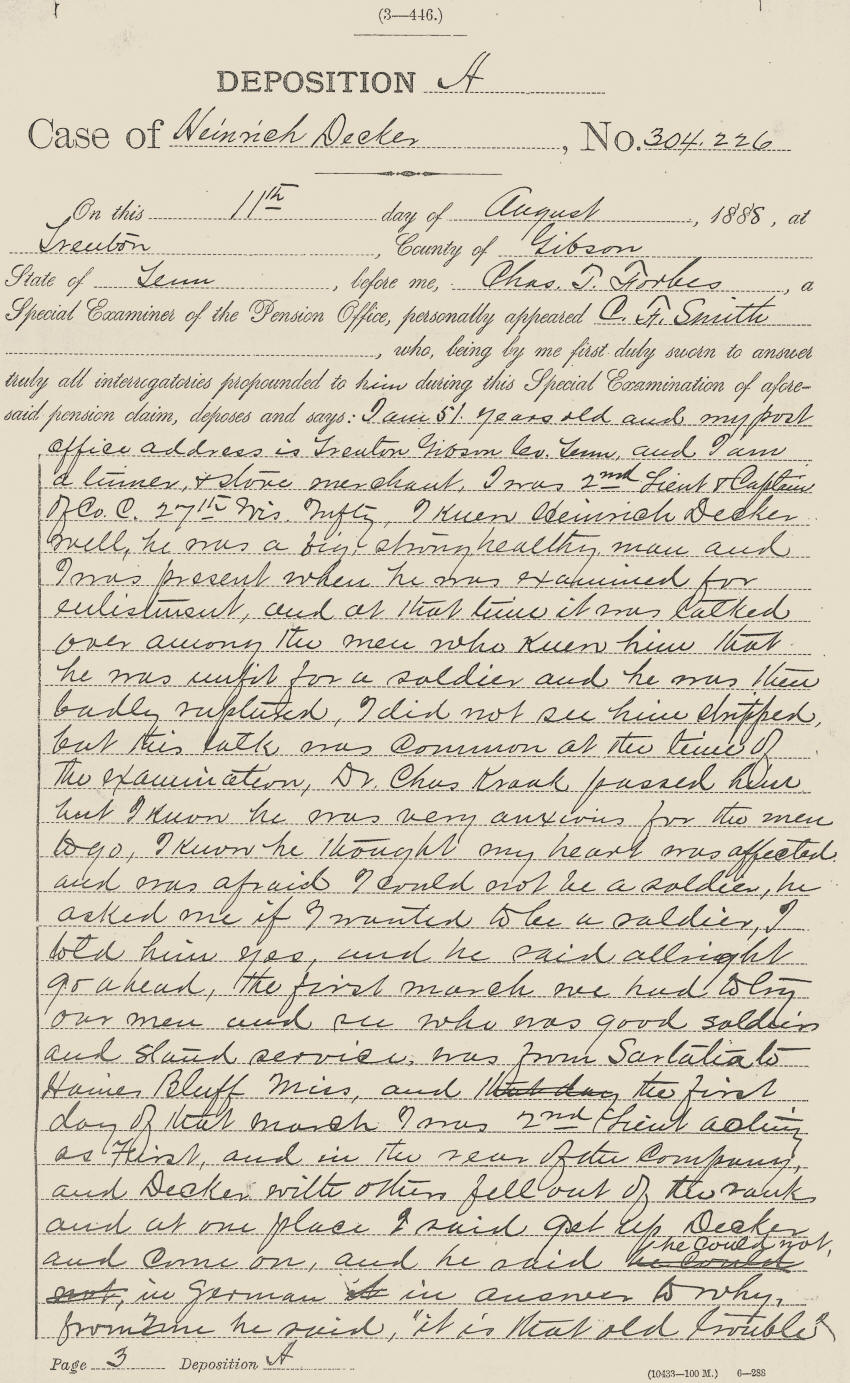 (3—446.)
DEPOSITION A
Case of Heinrich Decker, No. 304.226
On this 11th day of August, 1888, at
Trenton, County of Gibson
State of Tenn, before me, Chas. T. Forbes, a
Special Examiner of the Pension Office, personally appeared C. F. Smith
, who, being by me first duly sworn to answer
truly all interrogatories propounded to him during this Special Examination of afore-
said pension claim, deposes and says: I am 51 years old and my post
office address is Trenton Gibson Co. Tenn, and I am
a tinner, & stove merchant, I was 2nd Lieut & Captain
of Co. C. 27th Wis. Infty, I knew Heinrich Decker
well, he was a big, strong healthy man and
I was present when he was examined for
enlistment, and at that time it was talked
over among the men who knew him that
he was unfit for a soldier and he was then
badly ruptured, I did not see him stripped,
but this talk was common at the time of
the examination, Dr. Chas Kraak passed him
but I know he was very anxious for the men
to go, I know he thought my heart was affected
and was afraid I could not be a soldier, he
asked me if I wanted to be a soldier, I
told him yes, and he said allright
go ahead, the first march we had to try
our men and see who was good soldiers
and stand service, was from Sartatia to
Haines Bluff Miss, and that day the first
day of that march I was 2nd Lieut acting
as First, and in the rear of the Company,
and Decker with others fell out of the ranks
and at one place I said get up Decker
and come on, and he said he could he could not,
not, in German it in answer to why,
from me he said, "it is that old trouble"
Page 3 Deposition A
(10433—100 M.) 6—288